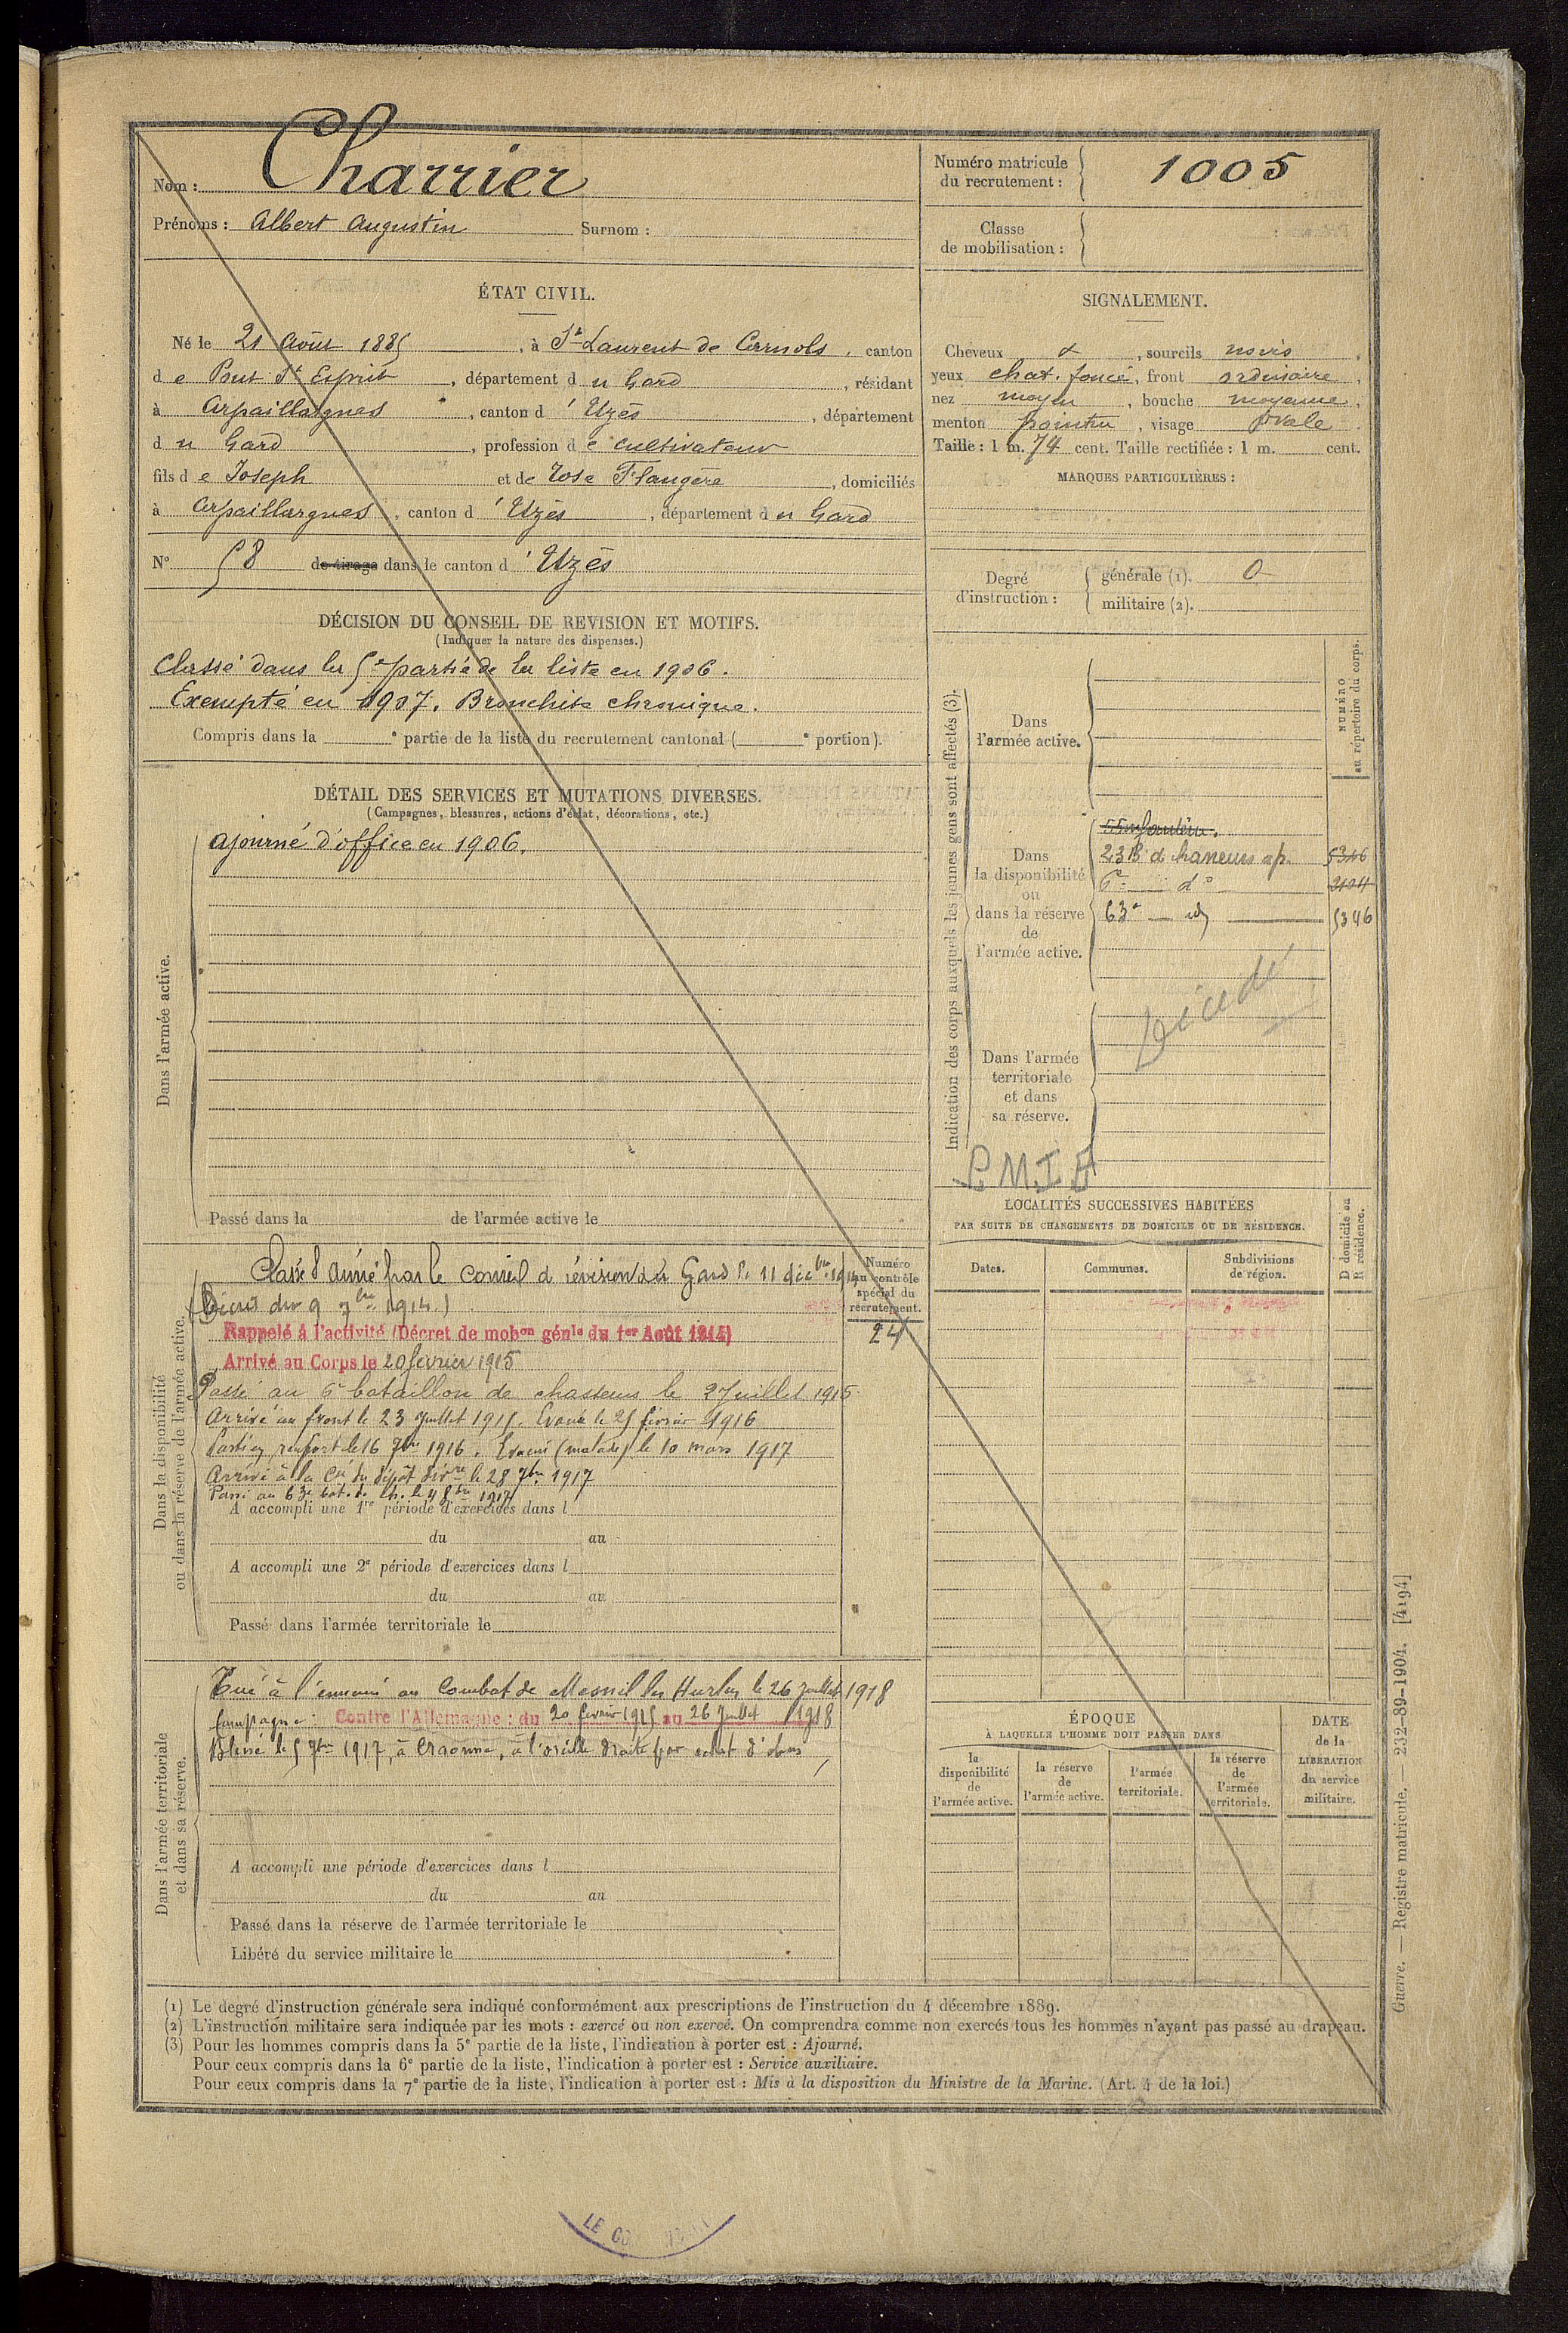 Nom : Charrier
Prénoms : Albert Augustin Surnom :
Numéro matricule du recrutement : 1005
Classe de mobilisation :
ÉTAT CIVIL.
Né le 21 Août 1885, à St Laurent de Carnols, canton
de Pont St Esprit, département du Gard, résidant
à Arpaillargues, canton d'Uzès, département
du Gard, profession de cultivateur
fils de Joseph et de Rose Flaugère, domiciliés
à Arpaillargues, canton d'Uzès, département du Gard
N° 58 de tirage dans le canton d'Uzès
DÉCISION DU CONSEIL DE REVISION ET MOTIFS.
(Indiquer la nature des dispenses.)
Classé dans la 5e partie de la liste en 1906.
Exempté en 1907. Bronchite chronique.
Compris dans la e partie de la liste du recrutement cantonal ( e portion).
DÉTAIL DES SERVICES ET MUTATIONS DIVERSES.
(Campagnes, blessures, actions d'éclat, décorations, etc.)
Dans l'armée active.
ajourné d'office en 1906.
Passé dans la de l'armée active le
Dans la disponibilité
ou dans la réserve de l'armée active.
Classé Sce armé par le conseil de révision du Gard le 11 décbre 1914
(Décret du 9 7bre 1914)
Rappelé à l'activité (Décret de mobon génle du 1er Août 1914)
Arrivé au Corps le 20 février 1915
Passé au 6e bataillon de chasseurs le 2 Juillet 1915
Arrivé au front le 23 Juillet 1915. Evacué le 25 février 1916
Parti en renfort le 16 7bre 1916. Evacué (malade) le 10 mars 1917
Arrivé à la Cie du dépôt divre le 28 7bre 1917
Passé au 63e bat. de ch. le 4 8bre 1917
A accompli une 1re période d'exercices dans l
du au
A accompli une 2e période d'exercices dans l
du au
Passé dans l'armée territoriale le
Numéro
au contrôle
spécial du
recrutement.
24
Dans l'armée territoriale
et dans sa réserve.
Tué à l'ennemi au Combat de Mesnil les Hurlus le 26 Juillet 1918
Campagne : Contre l'Allemagne : du 20 février 1915 au 26 Juillet 1918
Blessé le 5 7bre 1917, à Craonne, à l'oreille droite par éclat d'obus
A accompli une période d'exercices dans l
du au
Passé dans la réserve de l'armée territoriale le
Libéré du service militaire le
SIGNALEMENT.
Cheveux &, sourcils noirs,
yeux chat. foncé, front ordinaire,
nez moyen, bouche moyenne,
menton pointu, visage ovale.
Taille : 1 m. 74 cent. Taille rectifiée : 1 m. cent.
MARQUES PARTICULIÈRES :
Degré d'instruction :
générale (1). 0
militaire (2).
Indication des corps auxquels les jeunes gens sont affectés (3).
NUMÉRO
au répertoire du corps.
Dans
l'armée active.
Dans
la disponibilité
ou
dans la réserve
de
l'armée active.
55 infanterie.
23 B d chasseurs ap. 5346
6e do 2104
63e id 5346
Décédé
Dans l'armée
territoriale
et dans
sa réserve.
LOCALITÉS SUCCESSIVES HABITÉES
PAR SUITE DE CHANGEMENTS DE DOMICILE OU DE RÉSIDENCE.
Dates. Communes. Subdivisions de région.
D domicile ou
R résidence.
ÉPOQUE
À LAQUELLE L'HOMME DOIT PASSER DANS
la disponibilité de l'armée active.
la réserve de l'armée active.
l'armée territoriale.
la réserve de l'armée territoriale.
DATE
de la
LIBÉRATION
du service
militaire.
(1) Le degré d'instruction générale sera indiqué conformément aux prescriptions de l'instruction du 4 décembre 1889.
(2) L'instruction militaire sera indiquée par les mots : exercé ou non exercé. On comprendra comme non exercés tous les hommes n'ayant pas passé au drapeau.
(3) Pour les hommes compris dans la 5e partie de la liste, l'indication à porter est : Ajourné.
Pour ceux compris dans la 6e partie de la liste, l'indication à porter est : Service auxiliaire.
Pour ceux compris dans la 7e partie de la liste, l'indication à porter est : Mis à la disposition du Ministre de la Marine. (Art. 4 de la loi.)
Guerre. — Registre matricule. — 232-89-1904. [4194]